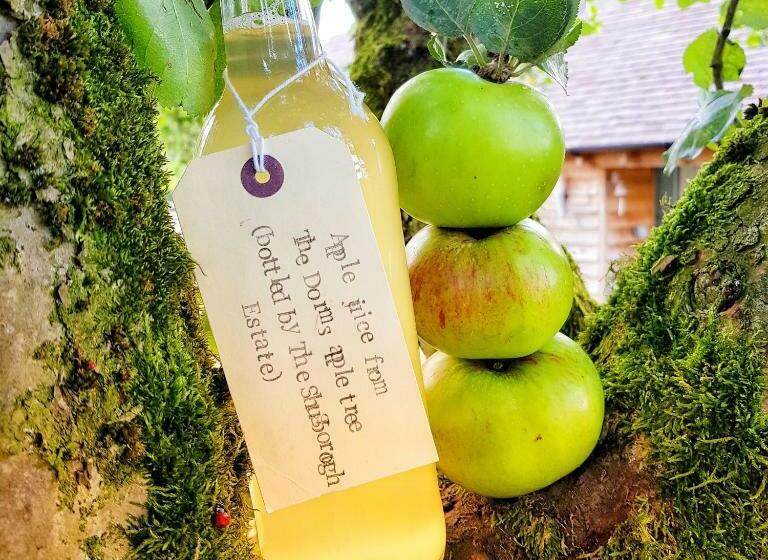 Apple juice from
The Dorms apple tree
(bottled by The Shugborough
Estate)